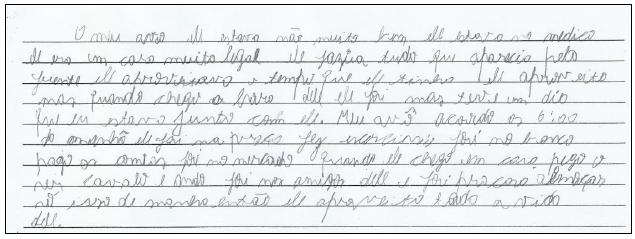 O meu avô ele estava não muito bem ele estava no medico
ele era um cara muito legal ele fazia tudo que aparecia pela
frente ele aproveitava o tempo que ele tinha ele aproveito
mas quando chego a hora dele ele foi mas teve um dia
que eu estava junto com ele. Meu avô acordo as 6:00
da manhã ele foi na praça fez exercicios foi no banco
pago as contas foi no mercado quando ele chego em casa pego o
seu cavalo e ando foi nos amigos dele e foi pra casa almoçar
isso de manha então ele aproveito toda a vida
dele.